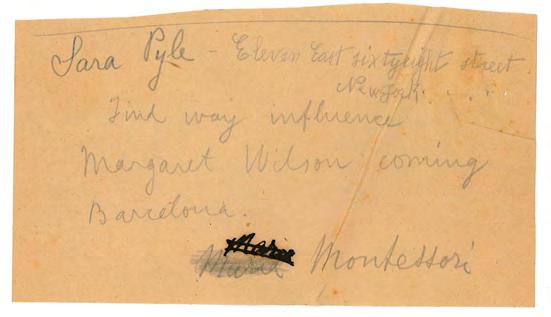 Sara Pyle - Eleven East sixtyeight street
New York . . .
Find way influence
Margaret Wilson coming
Barcelona.
Maria Montessori